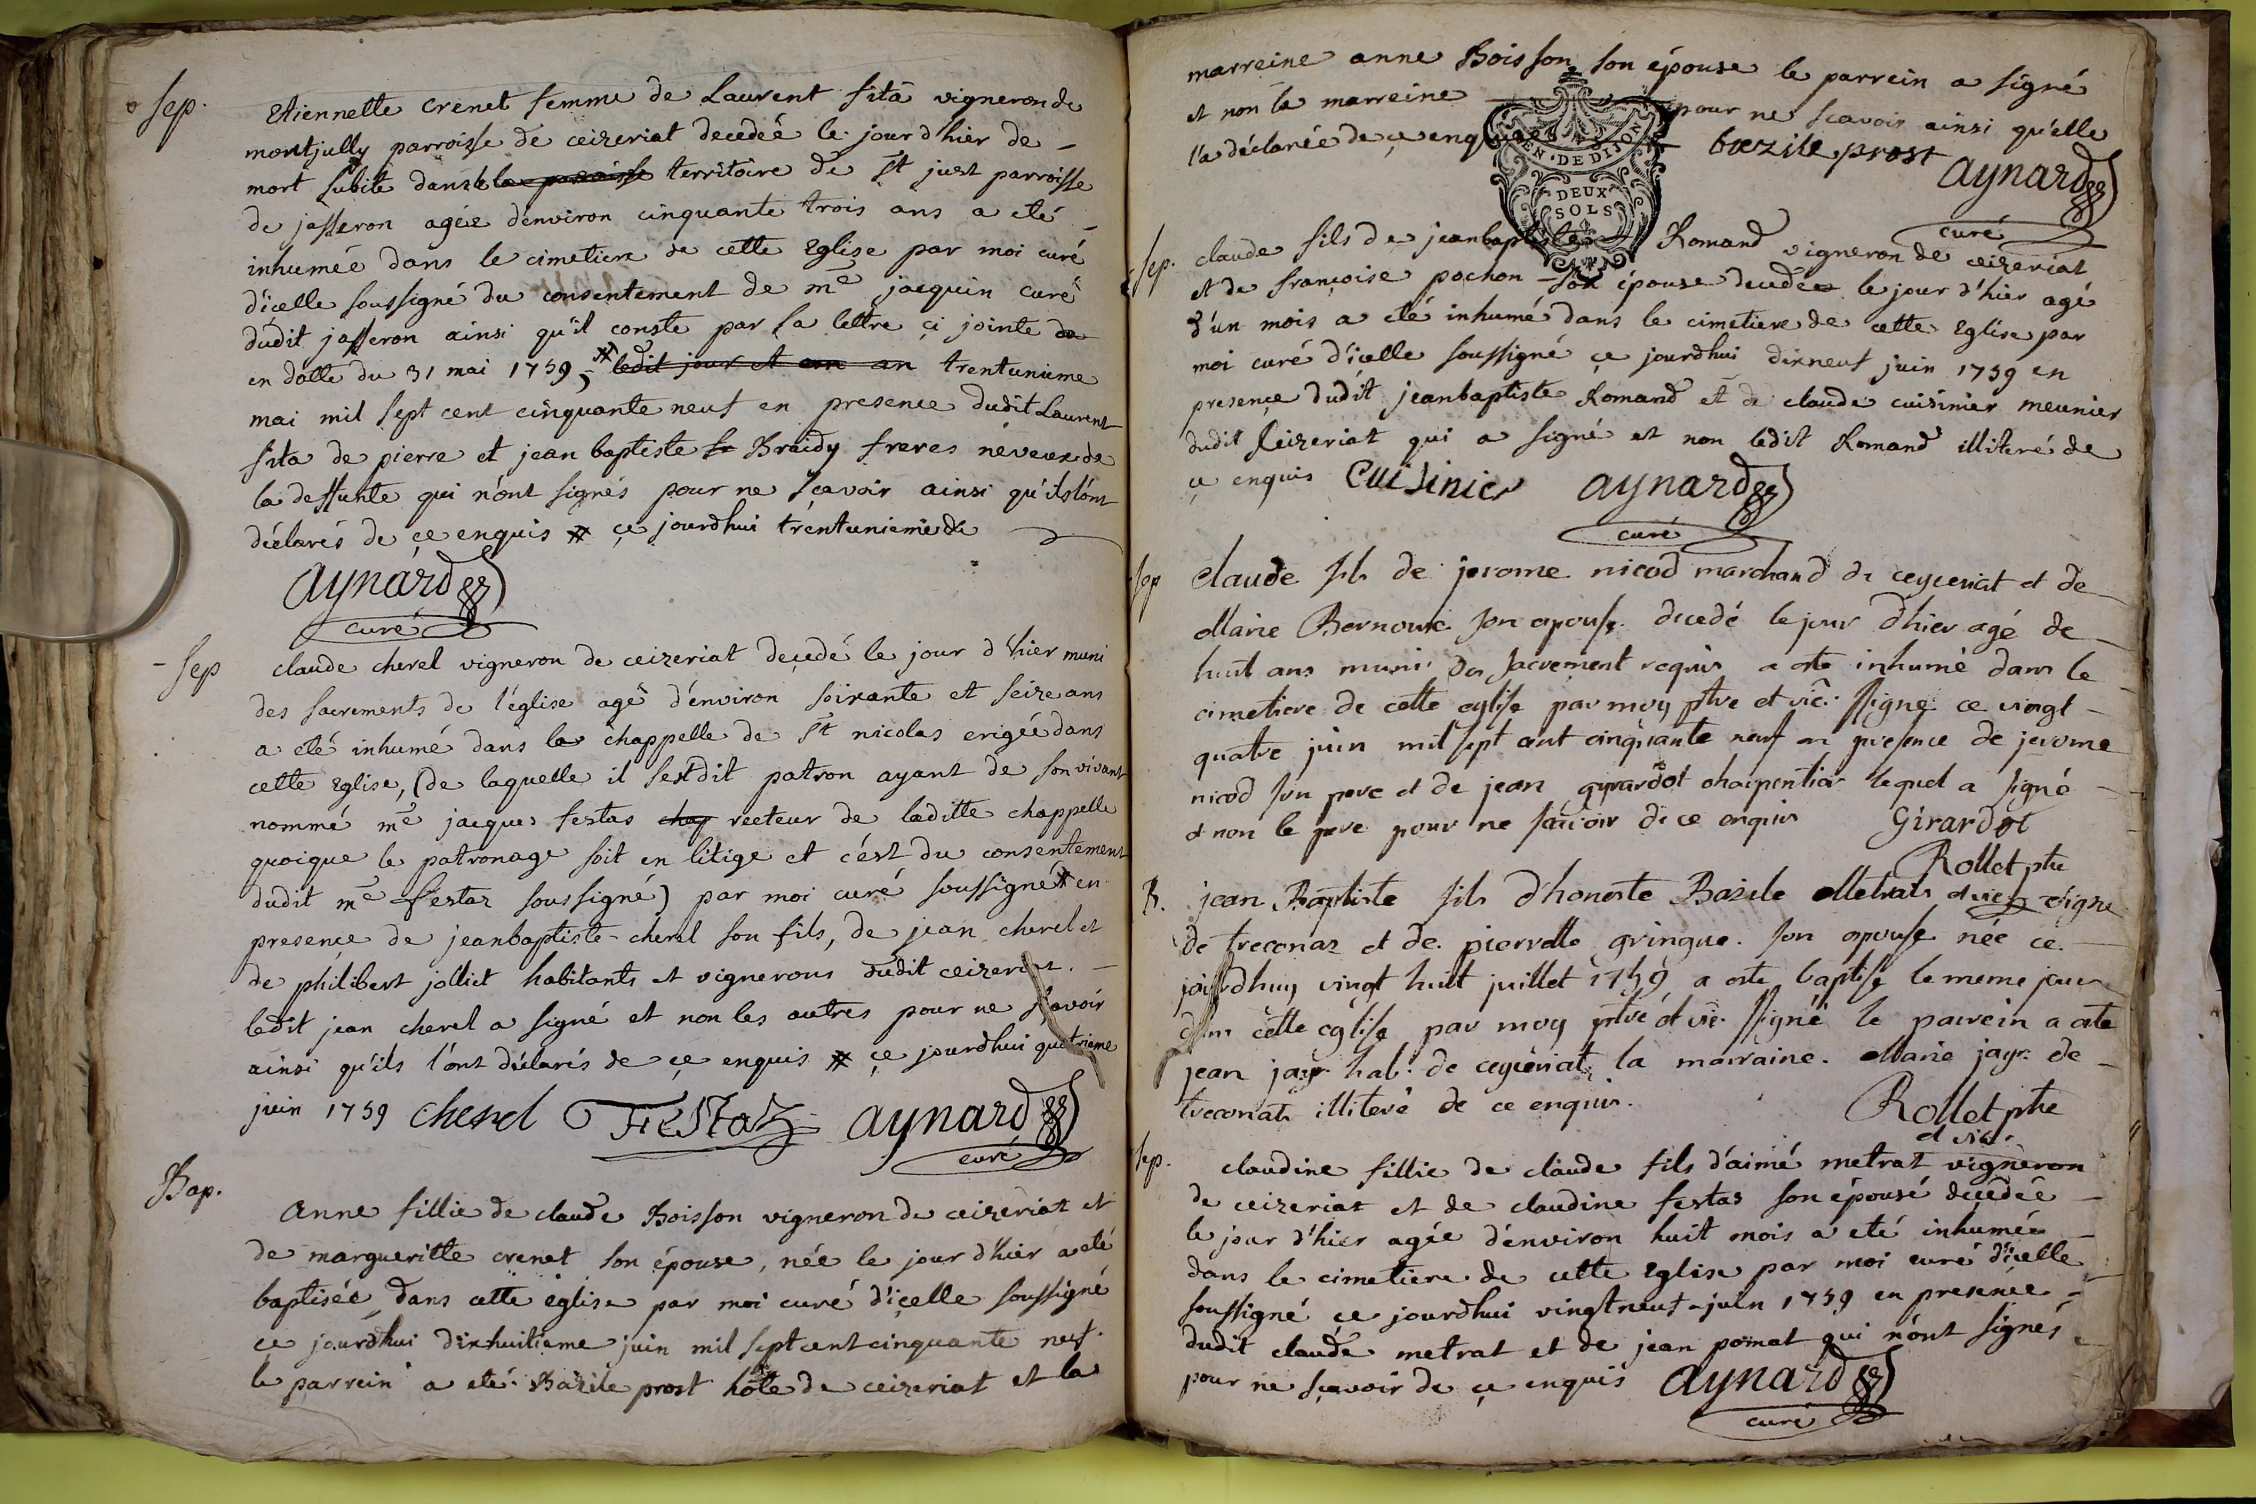 sep.
Etiennette crenet femme de Laurent sita vigneron de
montjully parroisse de ceizeriat decedeé le jour d'hier de
mort subite dans le la parroisse territoire de St just parroisse
de jasseron agée denviron cinquante trois ans a eté
inhumée dans le cimetiere de cette Eglise par moi curé
d'icelle soussigné du consentement de me jacquin curé
dudit jasseron ainsi qu'il conste par sa lettre çi jointe
en datte du 31 mai 1759, ledit jour et an trentunieme
mai mil sept cent cinquante neuf en presence dudit Laurent
sita de pierre et jean baptiste Braidy freres neveux de
la deffunte qui n'ont signés pour ne sçavoir ainsi qu'ils l'ont
déclarés de çe enquis ce jourdhui trentunieme de
aynard
curé
sep
claude cherel vigneron de ceizeriat deçedé le jour d'hier muni
des sacrements de l'église agé d'environ soixante et seize ans
a eté inhumé dans la chappelle de St nicolas erigée dans
cette Eglise, (de laquelle il sest dit patron ayant de son vivant
nommé me jacques festas chap recteur de laditte chappelle
quoique le patronage soit en litige et c'est du consentement
dudit me festaz soussigné) par moi curé soussigné en
presençe de jeanbaptiste cherel son fils, de jean cherel et
de philibert jolliet habitants et vignerons dudit ceizeriat.
ledit jean cherel a signé et non les autres pour ne sçavoir
ainsi qu'ils l'ont déclarés de çe enquis ce jourdhui quatrieme
juin 1759 cherel FESTAZ aynard
curé
Bap.
Anne fillie de claude Boisson vigneron de ceizeriat et
de margueritte crenet son épouse, née le jour d'hier a eté
baptisée dans cette église par moi curé d'içelle soussigné
çe jourdhui dixhuitieme juin mil sept cent cinquante neuf.
le parrein a eté Bazile prost hôte de ceizeriat et la
marreine anne Boisson son épouse le parrein a signé
et non la marreine pour ne scavoir ainsi qu'elle
l'a déclarée de çe enquise bazile prost
aynard
curé
GEN. DE DIJON
DEUX
SOLS
sep.
claude fils de jeanbaptiste Romand vigneron de ceizeriat
et de françoise pochon son épouse decedé le jour d'hier agé
d'un mois a eté inhumé dans le cimetiere de cette Eglise par
moi curé d'icelle soussigné çe jourdhui dixneuf juin 1759 en
presençe dudit jeanbaptiste Romand et de claude cuisinier meunier
dudit Ceizeriat qui a signé et non ledit Romand illiteré de
çe enquis Cuisinier aynard
curé
sep
claude fils de jerome nicod marchand de ceyzeriat et de
Marie Bernoux son epouse decedé le jour d'hier agé de
huit ans muni des sacrement requis a ete inhumé dans le
cimetiere de cette eglise par moy ptre et vic. ssigné ce vingt
quatre juin mil sept cent cinquante neuf en presence de jerome
nicod son pere et de jean gyrardot charpentier lequel a signé
et non le pere pour ne scavoir de ce enquis Girardot
Rollet ptre
et vic.
B.
jean Baptiste fils d'honeste Bazile Metrat vigne
de treconaz et de pierrette gringue son epouse née ce
jourdhuy vingt huit juillet 1759 a ete baptisé le meme jour
dans cette eglise par moy ptre et vic. ssigné le parrein a ete
jean jayr hab. de ceyzeriat, la marraine Marie jayr de
treconat illiteré de ce enquis.
Rollet ptre
et vic.
sep.
claudine fillie de claude fils d'aimé metrat vigneron
de ceizeriat et de claudine festaz son épouse deçedée
le jour d'hier agée d'environ huit mois a eté inhumée
dans le cimetiere de cette Eglise par moi curé d'icelle
soussigné çe jourdhui vingtneuf juin 1759 en presençe
dudit claude metrat et de jean pomat qui n'ont signés
pour ne sçavoir de çe enquis aynard
curé